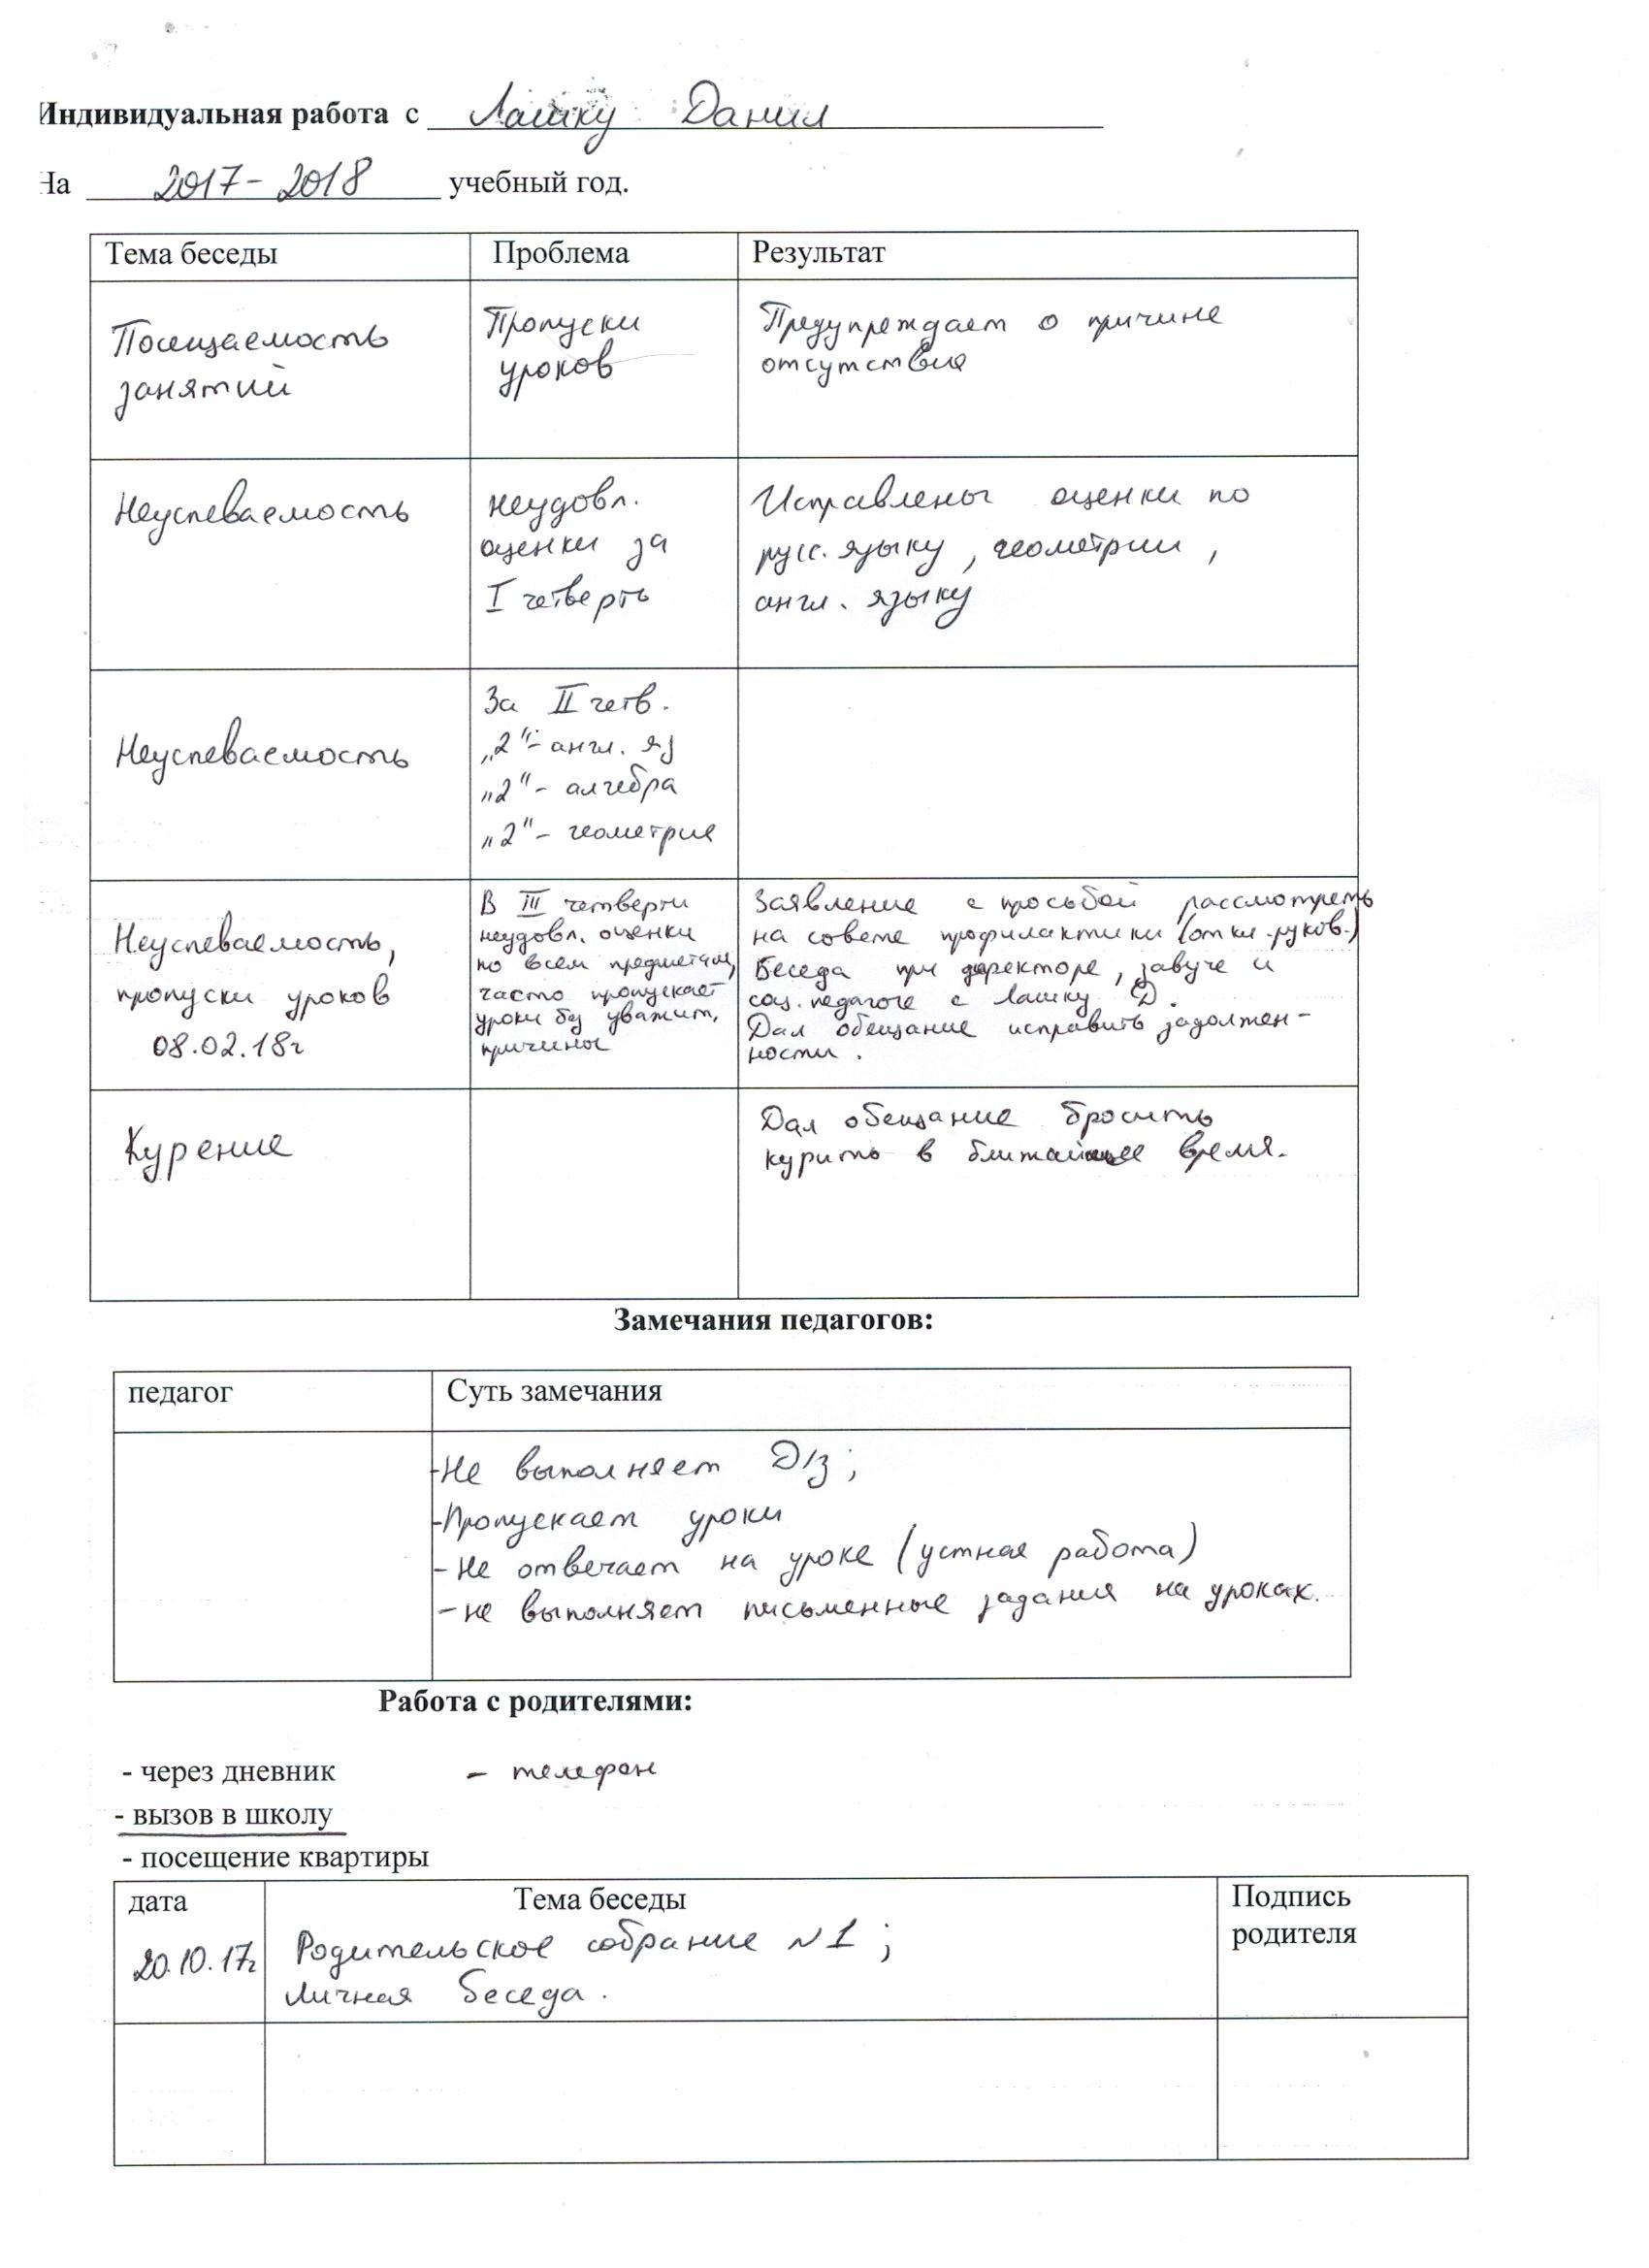 Индивидуальная работа с Лашку Данил
На 2017-2018 учебный год.
Тема беседы Проблема Результат
Посещаемость
занятий
Пропуски
уроков
Предупреждает о причине
отсутствия
Неуспеваемость
неудовл.
оценки за
I четверть
Исправлены оценки по
русс. языку, геометрии,
англ. языку
Неуспеваемость
За II четв.
„2“- англ. яз
„2“- алгебра
„2“- геометрия
Неуспеваемость,
пропуски уроков
08.02.18г
В III четверти
неудовл. оценки
по всем предметам,
часто пропускает
уроки без уважит.
причины
Заявление с просьбой рассмотреть
на совете профилактики (от кл.руков.)
Беседа при директоре, завуче и
соц. педагоге с Лашку Д.
Дал обещание исправить задолжен-
ности.
Курение
Дал обещание бросить
курить в ближайшее время.
Замечания педагогов:
педагог Суть замечания
-Не выполняет Д/з;
-Пропускает уроки
- Не отвечает на уроке (устная работа)
- не выполняет письменные задания на уроках.
Работа с родителями:
- через дневник - телефон
- вызов в школу
- посещение квартиры
дата Тема беседы Подпись
родителя
20.10.17г Родительское собрание №1;
Личная беседа.